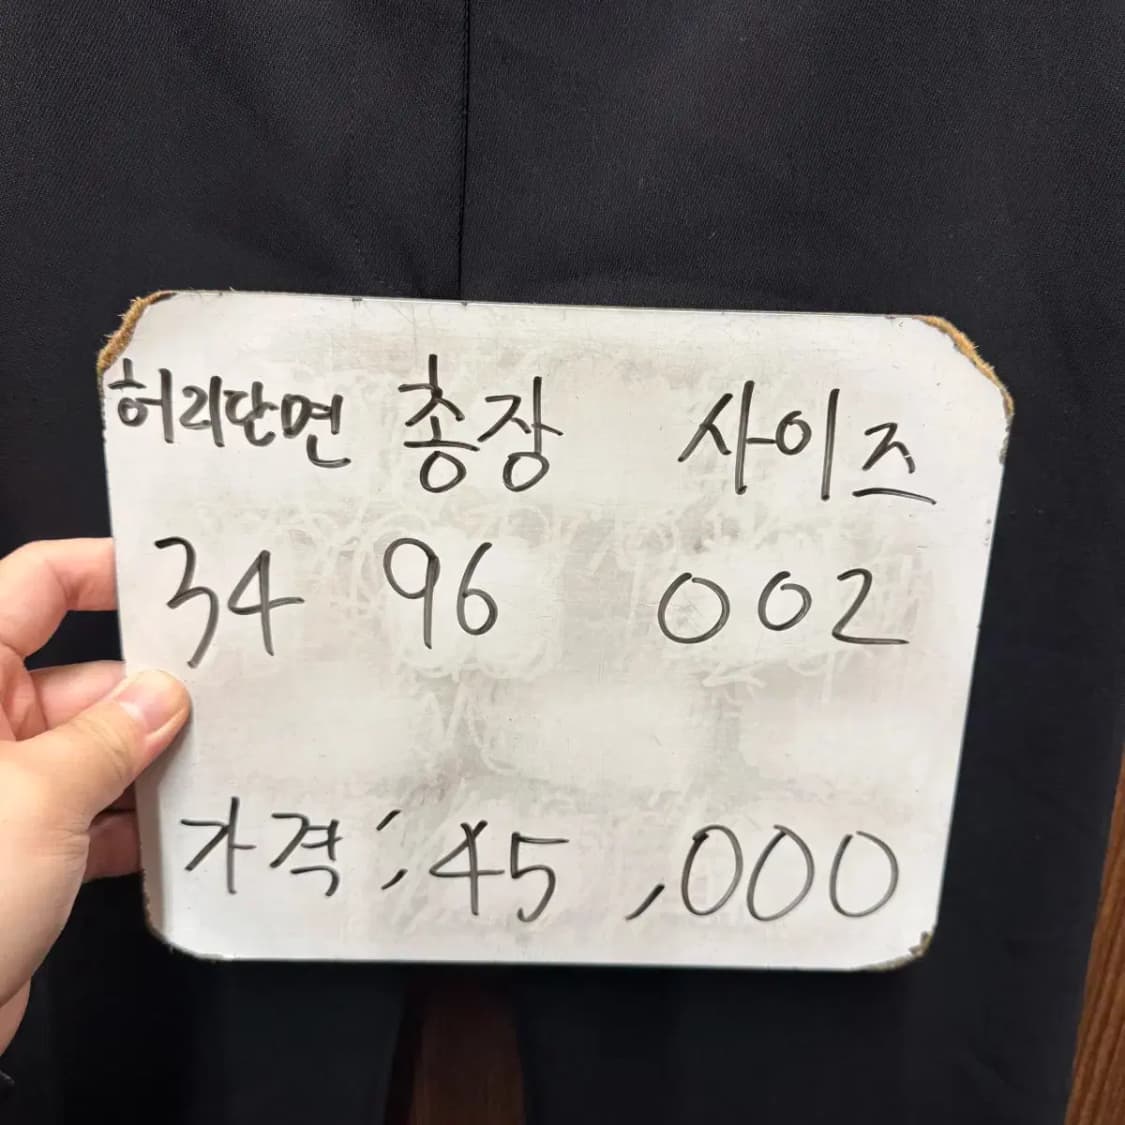 허리단면 총장 사이즈
34 96 002
가격 : 45,000